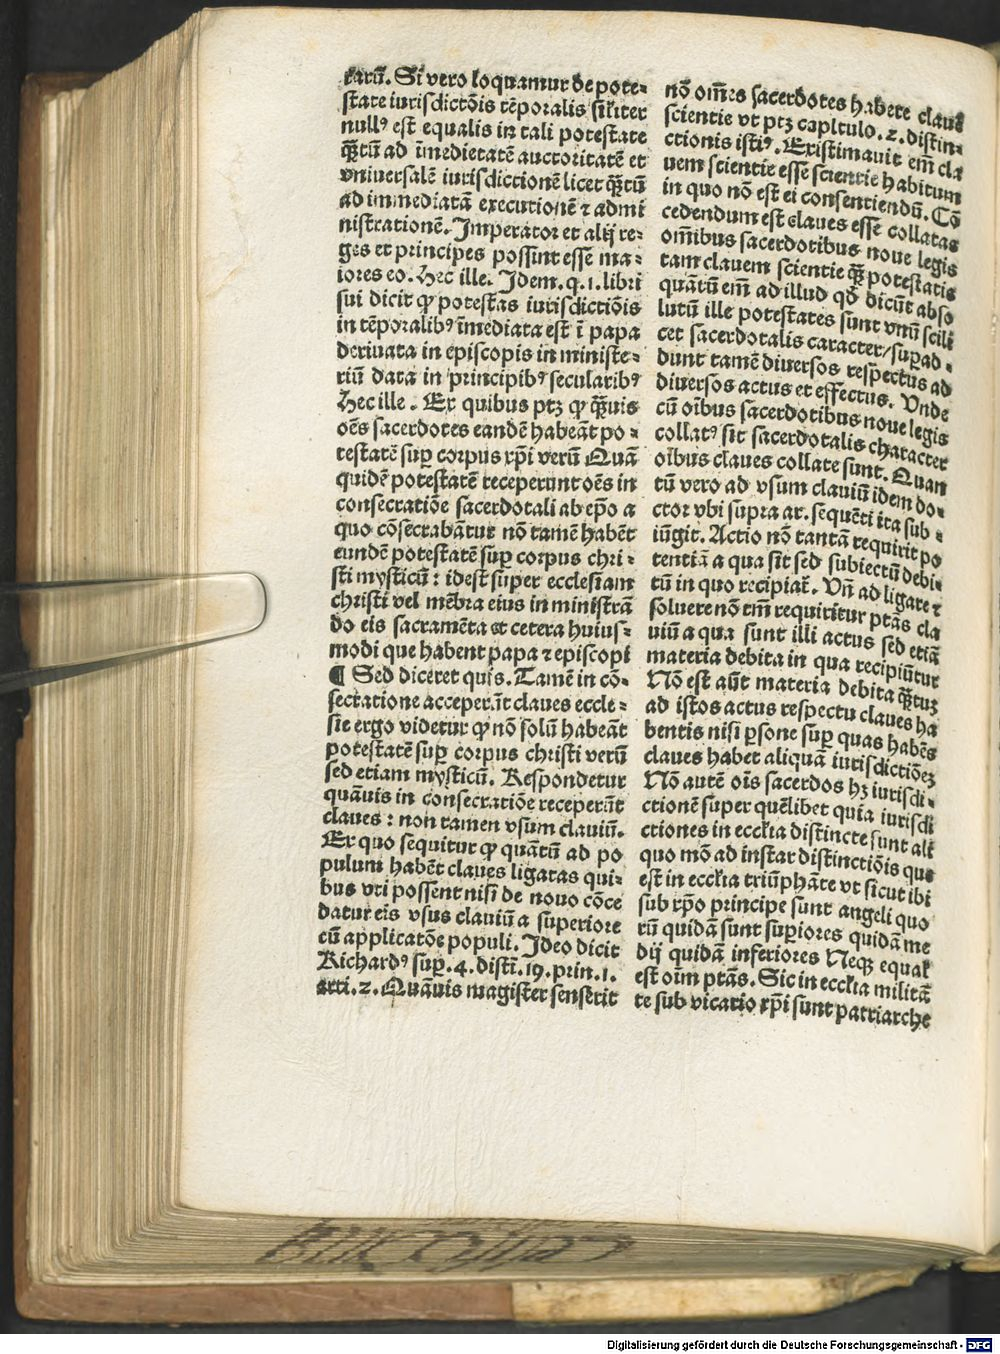 rarū. Si vero loquamur de pote-
state iurisdictōis tēporalis silꝛiter
null⁹ est equalis in tali potestate
qꝫtū ad īmedietatē auctoritatē et
vniuersalē iurisdictionē licet qꝫtū
ad immediatā executionē ⁊ admi
nistrationē. Imperator et alij re-
ges et principes possint esse ma-
iores eo. Hec ille. Idem. q. 1. libri
sui dicit ꝙ potestas iurisdictiōis
in tēporalib⁹ īmediata est ī papa
deriuata in episcopis in ministe-
riū data in principib⁹ secularib⁹
Hec ille. Ex quibus ptꝫ ꝙ qꝫuis
oēs sacerdotes eandē habeāt po-
testatē suꝑ corpus xp̄i verū Quā
quidē potestatē receperunt oēs in
consecratiōe sacerdotali ab ep̄o a
quo cōsecrabātur nō tamē habēt
eundē potestatē suꝑ corpus chri-
sti mysticū: idest super ecclesiam
christi vel mēbra eius in ministrā
do eis sacramēta et cetera huius-
modi que habent papa ⁊ episcopi
¶ Sed diceret quis. Tamē in cō-
secratione acceperāt claues eccle-
sie ergo videtur ꝙ nō solū habeāt
potestatē suꝑ corpus christi verū
sed etiam mysticū. Respondetur
quāuis in consecratiōe receperāt
claues: non tamen vsum clauiū.
Ex quo sequitur ꝙ quātū ad po
pulum habēt claues ligatas qui-
bus vti possent nisi de nouo cōce
datur eis vsus clauiū a superiore
cū applicatōe populi. Ideo dicit
Richard⁹ suꝑ. 4. distī. 19. prin. 1.
arti. 2. Quāuis magister senserit
nō om̄es sacerdotes habere clauē
scientie vt ptꝫ capitulo. 2. distin-
ctionis isti⁹. Existimauit em̄ cla
uem scientie esse scientie habitum
in quo nō est ei consentiendū. Cō
cedendum est claues esse collatas
om̄ibus sacerdotibus noue legis
tam clauem scientie qꝫ potestatis
quātū em̄ ad illud qd̄ dicūt abso
lutū ille potestates sunt vnū scili
cet sacerdotalis caracter/suꝑad-
dunt tamē diuersos respectus ad
diuersos actus et effectus. Vnde
cū oībus sacerdotibus noue legis
collat⁹ sit sacerdotalis character
oībus claues collate sunt. Quan
tū vero ad vsum clauiū idem do-
ctor vbi supra ar. sequēti ita sub-
iūgit. Actio nō tantā requirit po
tentiā a qua sit sed subiectū debi-
tū in quo recipiat̄. Vn̄ ad ligare ⁊
soluere nō tm̄ requiritur ptās cla
uiū a qua sunt illi actus sed etiā
materia debita in qua recipiūtur
Nō est aūt materia debita qꝫtuꝫ
ad istos actus respectu claues ha
bentis nisi ꝑsone suꝑ quas habēs
claues habet aliquā iurisdictiōeꝫ
Nō autē oīs sacerdos hꝫ iurisdi-
ctionē super quēlibet quia iurisdi
ctiones in eccl̄ia distincte sunt ali
quo mō ad instar distinctiōis que
est in eccl̄ia triūphāte vt sicut ibi
sub xp̄o principe sunt angeli quo
rū quidā sunt suꝑiores quidā me
dij quidā inferiores Neqꝫ equal̄
est oīm ptās. Sic in eccl̄ia militā
te sub vicario xp̄i sunt patriarche
Digitalisierung gefördert durch die Deutsche Forschungsgemeinschaft - DFG